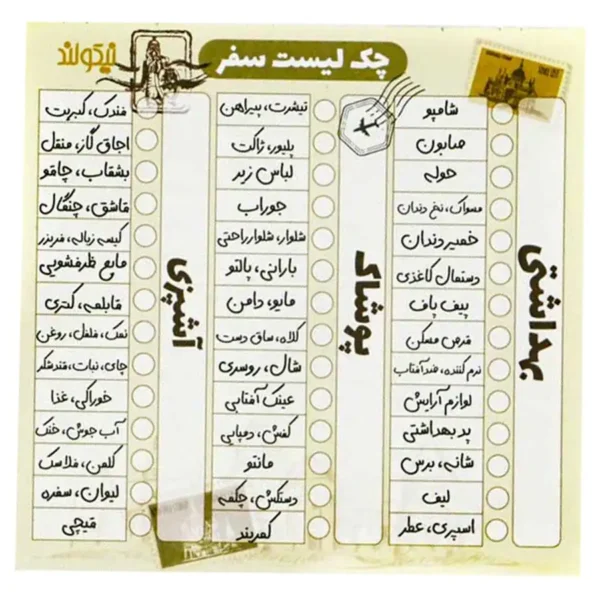 چک لیست سفر
نیکولند
بهداشتی
شامپو
صابون
حوله
مسواک، نخ دندان
خمیردندان
دستمال کاغذی
پیف پاف
قرص مسکن
نرم کننده، ضدآفتاب
لوازم آرایش
پد بهداشتی
شانه، برس
لیف
اسپری، عطر
پوشاک
تیشرت، پیراهن
پلیور، ژاکت
لباس زیر
جوراب
شلوار، شلوار راحتی
بارانی، پالتو
مایو، دامن
کلاه، ساق دست
شال، روسری
عینک آفتابی
کفش، دمپایی
مانتو
دستکش، چکمه
کمربند
آشپزی
فندک، کبریت
اجاق گاز، منقل
بشقاب، چاقو
قاشق، چنگال
کیسه زباله، فریزر
مایع ظرفشویی
قابلمه، کتری
نمک، فلفل، روغن
چای، نبات، قندشکر
خوراکی، غذا
آب جوش، خنک
کلمن، فلاسک
لیوان، سفره
قیچی